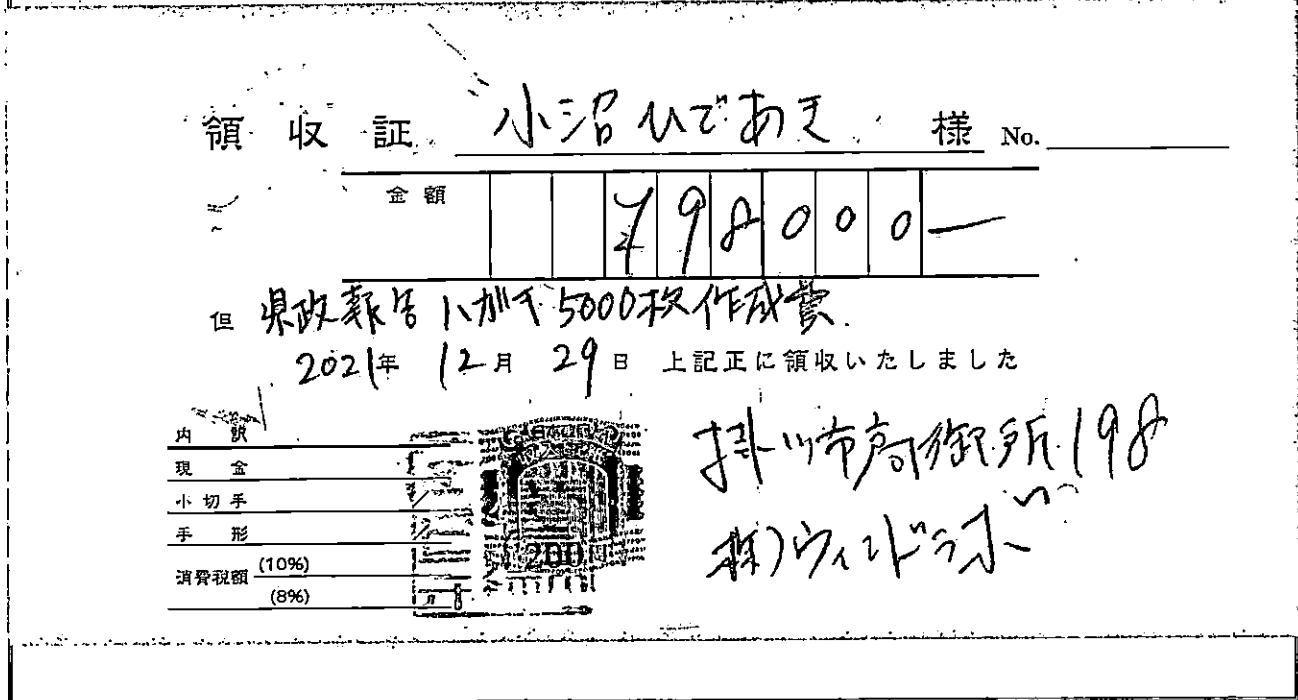 領収証 小沼ひであき 様 No.
金額 ¥98000―
但 県政報告ハガキ5000枚作成費
2021年 12月 29日 上記正に領収いたしました
内訳
現金
小切手
手形
消費税額 (10%)
(8%)
200
掛川市高御所198
株)ウィンドラボ